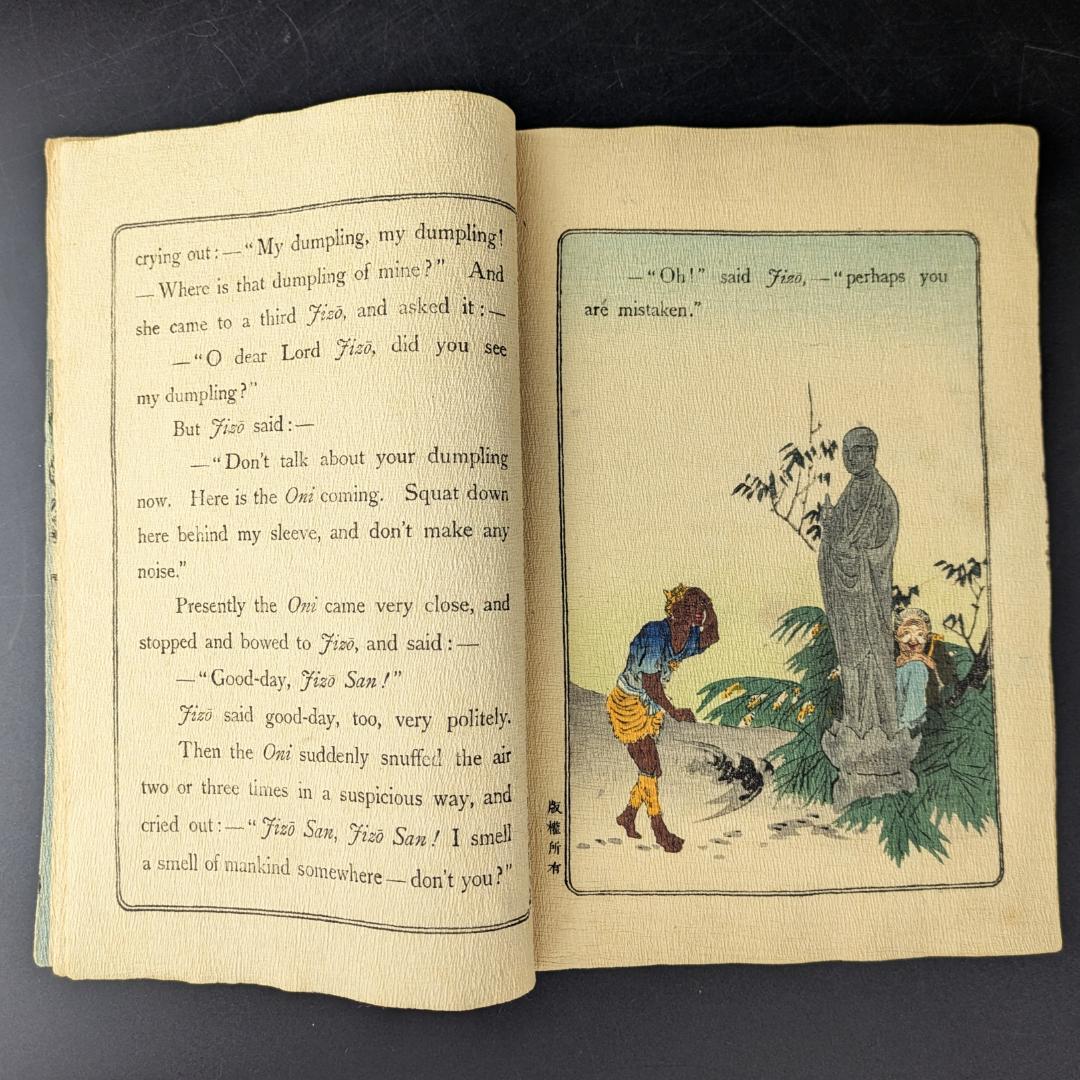 crying out:—“My dumpling, my dumpling!
—Where is that dumpling of mine?” And
she came to a third Jizō, and asked it:—
—“O dear Lord Jizō, did you see
my dumpling?”
But Jizō said:—
—“Don't talk about your dumpling
now. Here is the Oni coming. Squat down
here behind my sleeve, and don't make any
noise.”
Presently the Oni came very close, and
stopped and bowed to Jizō, and said:—
—“Good-day, Jizō San!”
Jizō said good-day, too, very politely.
Then the Oni suddenly snuffed the air
two or three times in a suspicious way, and
cried out:—“Jizō San, Jizō San! I smell
a smell of mankind somewhere—don't you?”
—“Oh!” said Jizō,—“perhaps you
are mistaken.”
版權所有